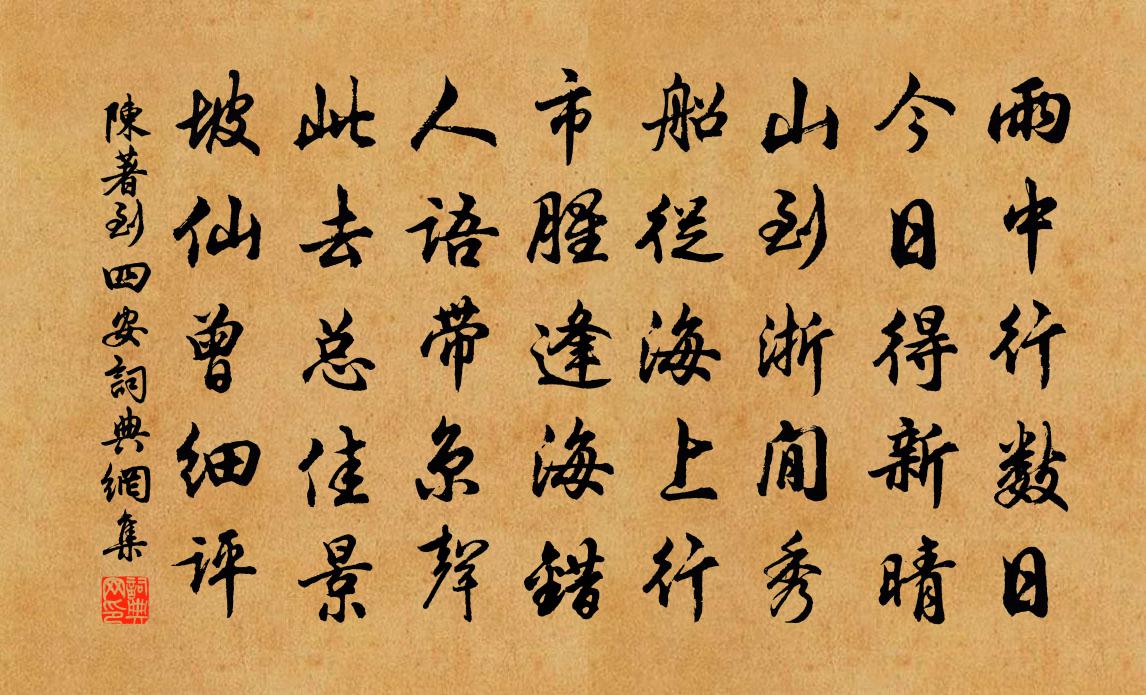 雨中行數日
今日得新晴
山到浙間秀
船從海上行
市腥逢海錯
人語帶京聲
此去總佳景
坡仙曾細評
陳著到四安詞典網集
詞典网印